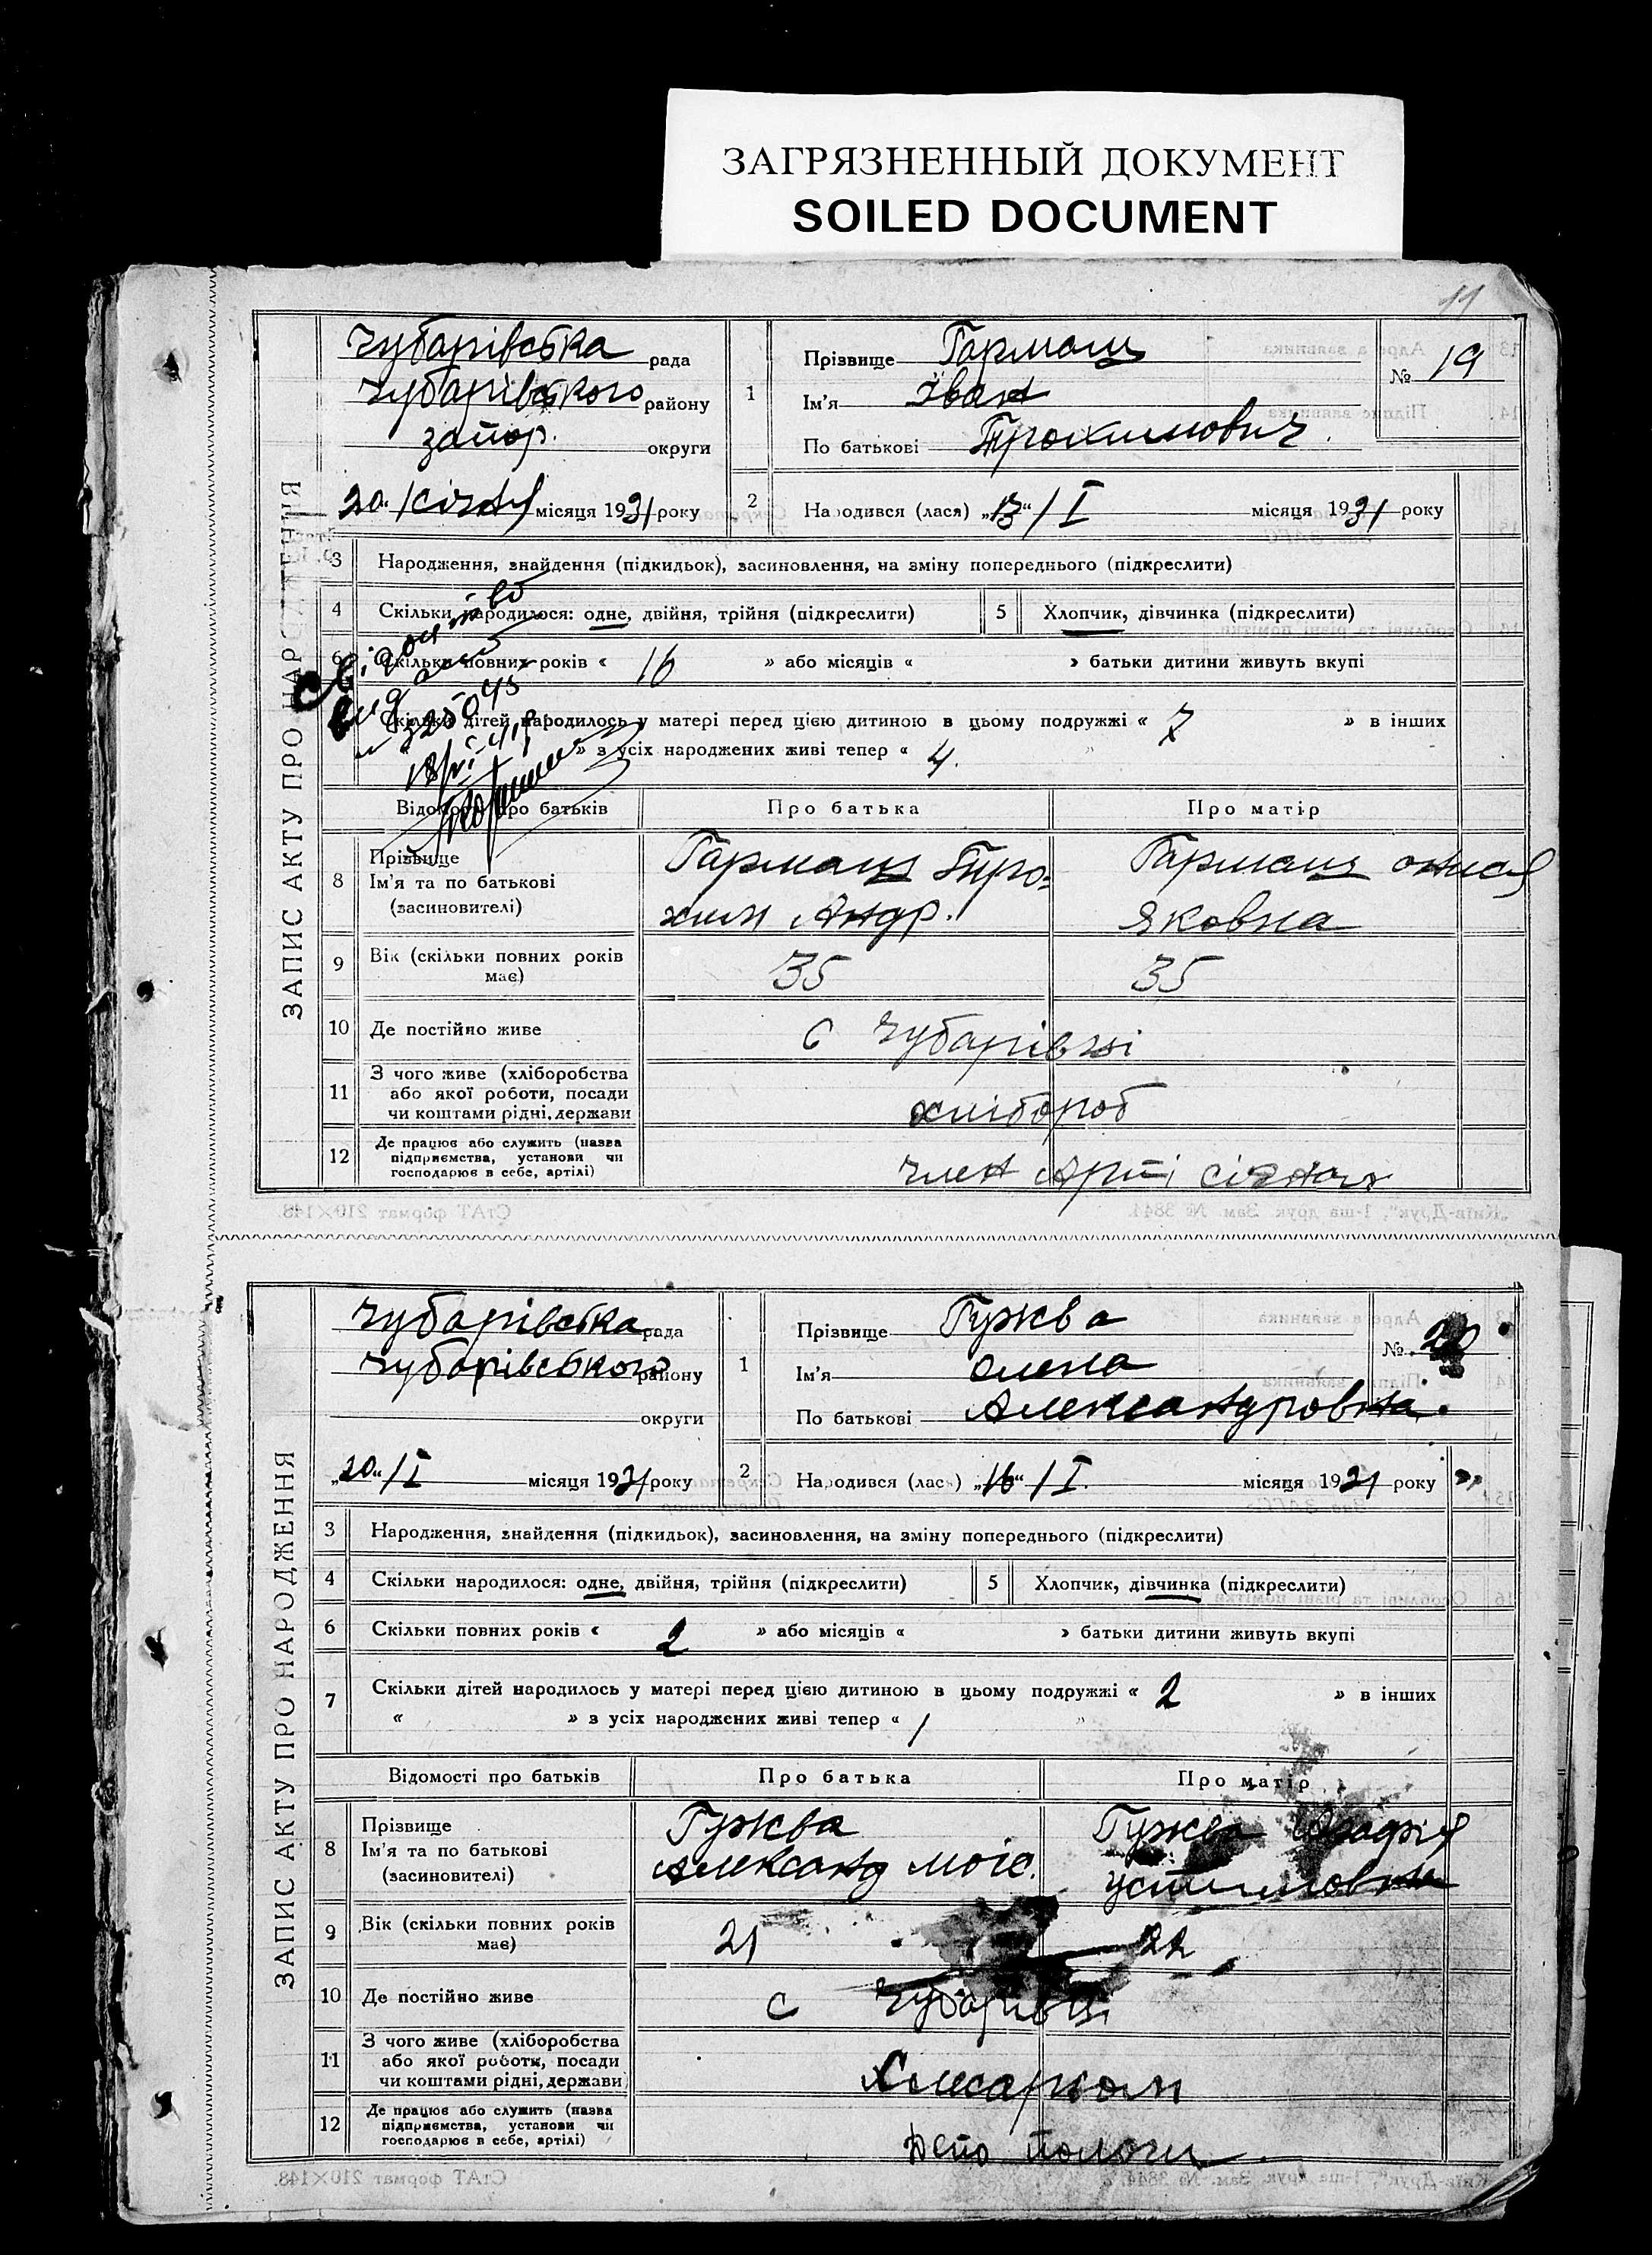 ЗАГРЯЗНЕННЫЙ ДОКУМЕНТ
SOILED DOCUMENT
11
ЗАПИС АКТУ ПРО НАРОДЖЕННЯ
Чубарівська рада
Чубарівського району
запор. округи
20 Січня місяця 1931 року
1
Прізвище Гармаш
Ім'я Іван
По батькові Трохимович
№ 19
2
Народився (лася) „13“ / I місяця 1931 року
3 Народження, знайдення (підкидьок), засиновлення, на зміну попереднього (підкреслити)
4 Скільки народилося: одне, двійня, трійня (підкреслити)
5 Хлопчик, дівчинка (підкреслити)
6 Скільки повних років « 16 » або місяців « » батьки дитини живуть вкупі
Скільки дітей народилось у матері перед цією дитиною в цьому подружжі « 7 » в інших
« » з усіх народжених живі тепер « 4.
Відомості про батьків
Про батька
Про матір
8
Прізвище
Ім'я та по батькові
(засиновителі)
Гармаш Тро-
хим Андр.
Гармаш
Яковна
9
Вік (скільки повних років
має)
35
35
10 Де постійно живе
с Чубарівці
11
З чого живе (хліборобства
або якої роботи, посади
чи коштами рідні, держави
хлібороб
12
Де працює або служить (назва
підприємства, установи чи
господарює в себе, артілі)
член Арті
СтАТ формат 210×148.
„Київ-Друк“, 1-ша друк. Зам. № 3844.
ЗАПИС АКТУ ПРО НАРОДЖЕННЯ
Чубарівська рада
Чубарівського району
округи
„20“ / I місяця 1931 року
1
Прізвище Гужва
Ім'я олена
По батькові Александровна
№ 20
2
Народився (лася) „16“ / I. місяця 1931 року
3 Народження, знайдення (підкидьок), засиновлення, на зміну попереднього (підкреслити)
4 Скільки народилося: одне, двійня, трійня (підкреслити)
5 Хлопчик, дівчинка (підкреслити)
6 Скільки повних років « 2 » або місяців « » батьки дитини живуть вкупі
7
Скільки дітей народилось у матері перед цією дитиною в цьому подружжі « 2 » в інших
« » з усіх народжених живі тепер « 1 »
Відомості про батьків
Про батька
Про матір
8
Прізвище
Ім'я та по батькові
(засиновителі)
Гужва
Александ моіс.
Гужва
устимовна
9
Вік (скільки повних років
має)
21
22
10 Де постійно живе
с Чубарівці
11
З чого живе (хліборобства
або якої роботи, посади
чи коштами рідні, держави
Слесарком
12
Де працює або служить (назва
підприємства, установи чи
господарює в себе, артілі)
Депо Пологи
СтАТ формат 210×148.
„Київ-Друк“, 1-ша друк. Зам. № 3844.